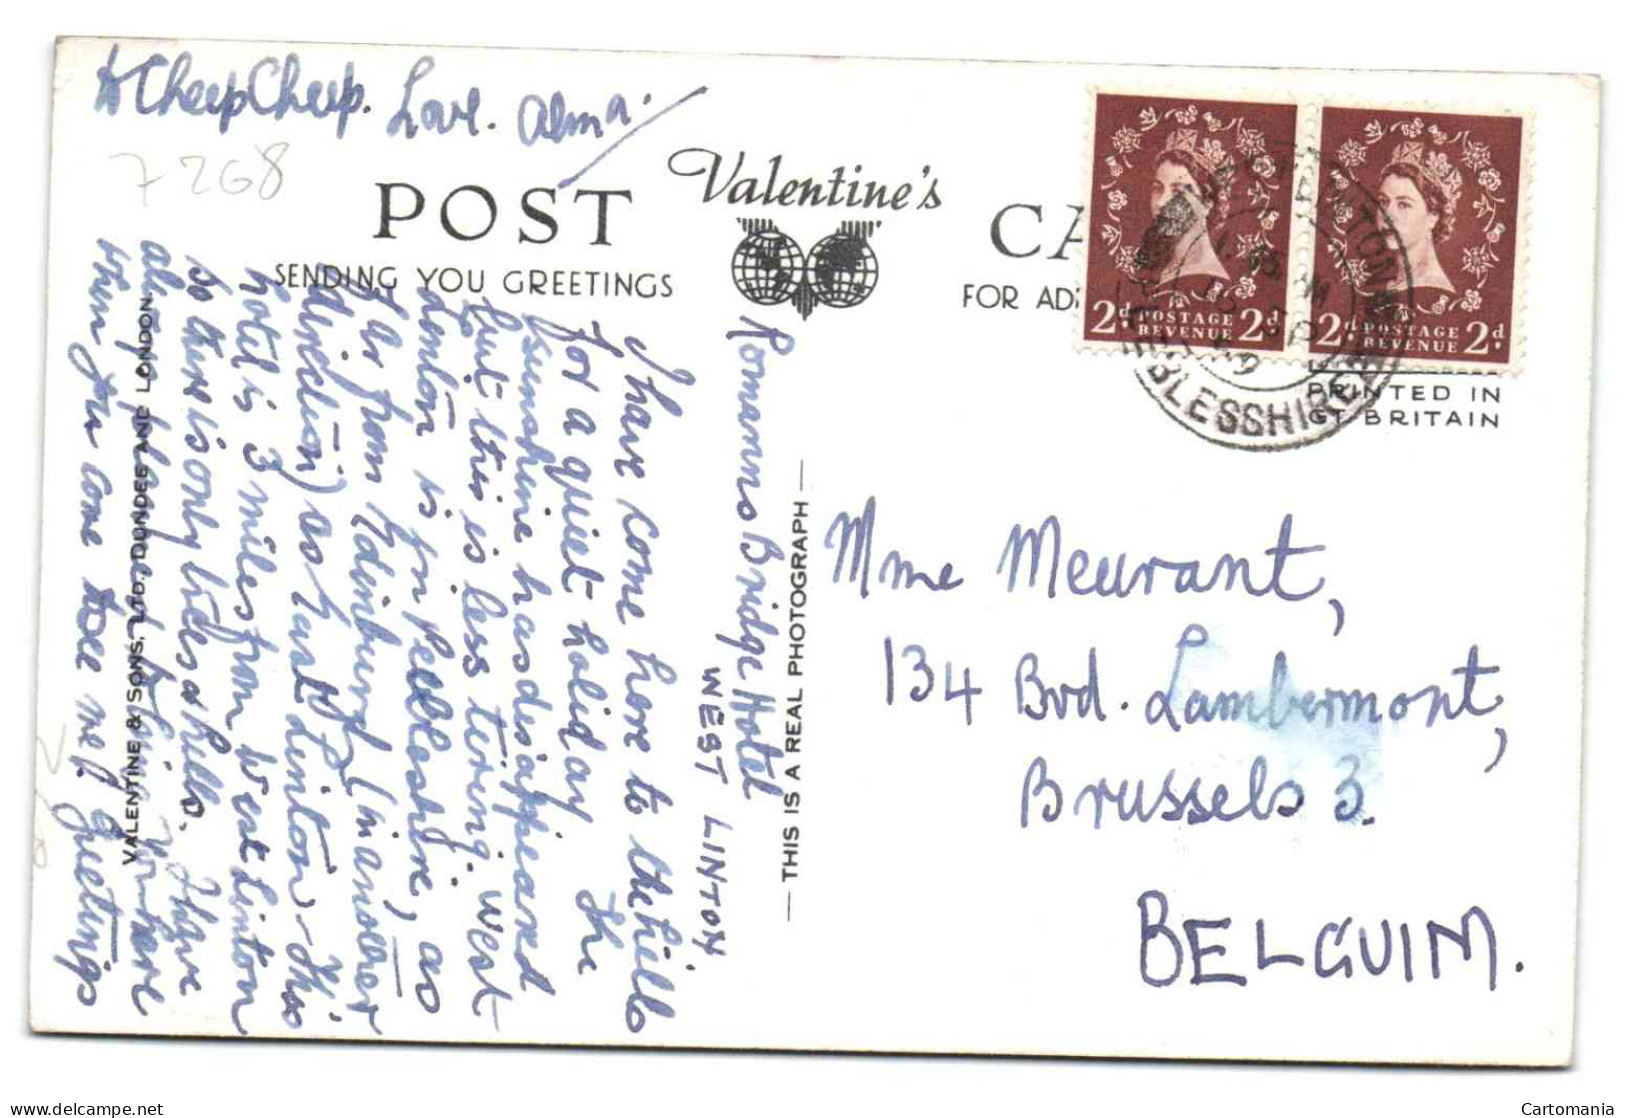 to Cheep Cheep. Love. Alma.
7268
POST
Valentine's
CA
SENDING YOU GREETINGS
FOR AD
2d POSTAGE REVENUE 2d
2d POSTAGE REVENUE 2d
WEST LINTON
BLESSHIRE
PRINTED IN
GT BRITAIN
Romanno Bridge Hotel
WEST LINTON
I have come here to the hills
for a quiet holiday. The
sunshine has disappeared
but this is less tiring. West
Linton is in Peeblesshire, as
far from Edinburgh (in another
direction) as East Linton. This
hotel is 3 miles from West Linton
so there is only trees & hills. I have
when you come to see me? Greetings
VALENTINE & SONS, LTD. DUNDEE AND LONDON.
— THIS IS A REAL PHOTOGRAPH —
Mme Meurant,
134 Bvd. Lambermont,
Brussels 3.
BELGUIM.
Cartomania